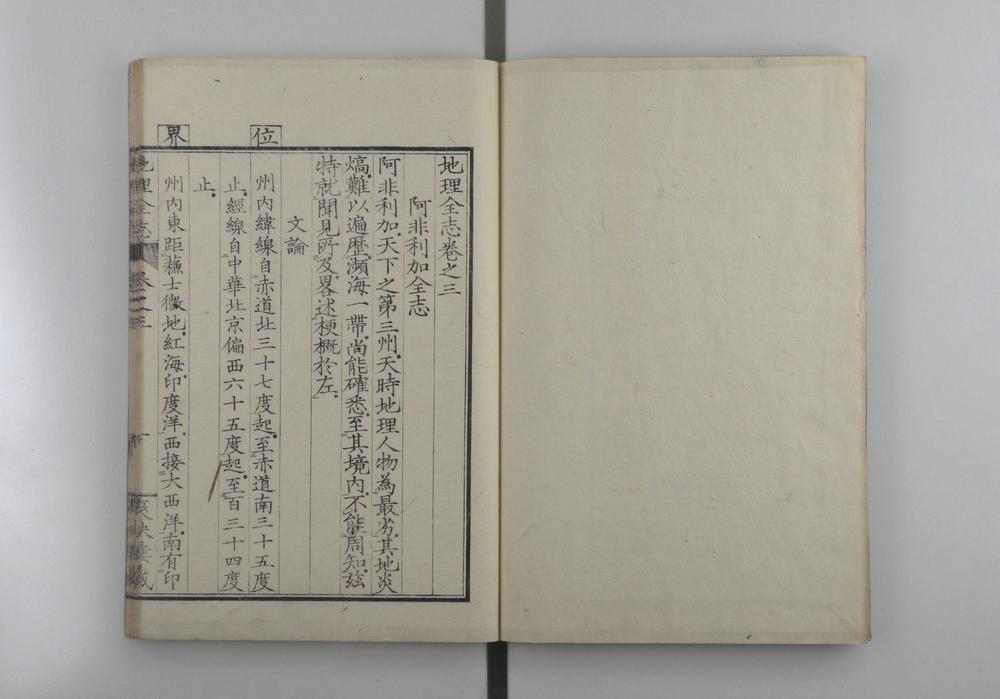 地理全志卷之三
阿非利加全志
阿非利加天下之第三州天時地理人物為最劣其地炎
熇難以遍歷瀕海一帶尚能確悉至其境内不能周知茲
特就聞見所及畧述梗概於左
文論
位
州内緯線自赤道北三十七度起至赤道南三十五度
止經線自中華北京偏西六十五度起至百三十四度
止
界
州内東距蘓士微地紅海印度洋西接大西洋南有印
地理全志 卷之三